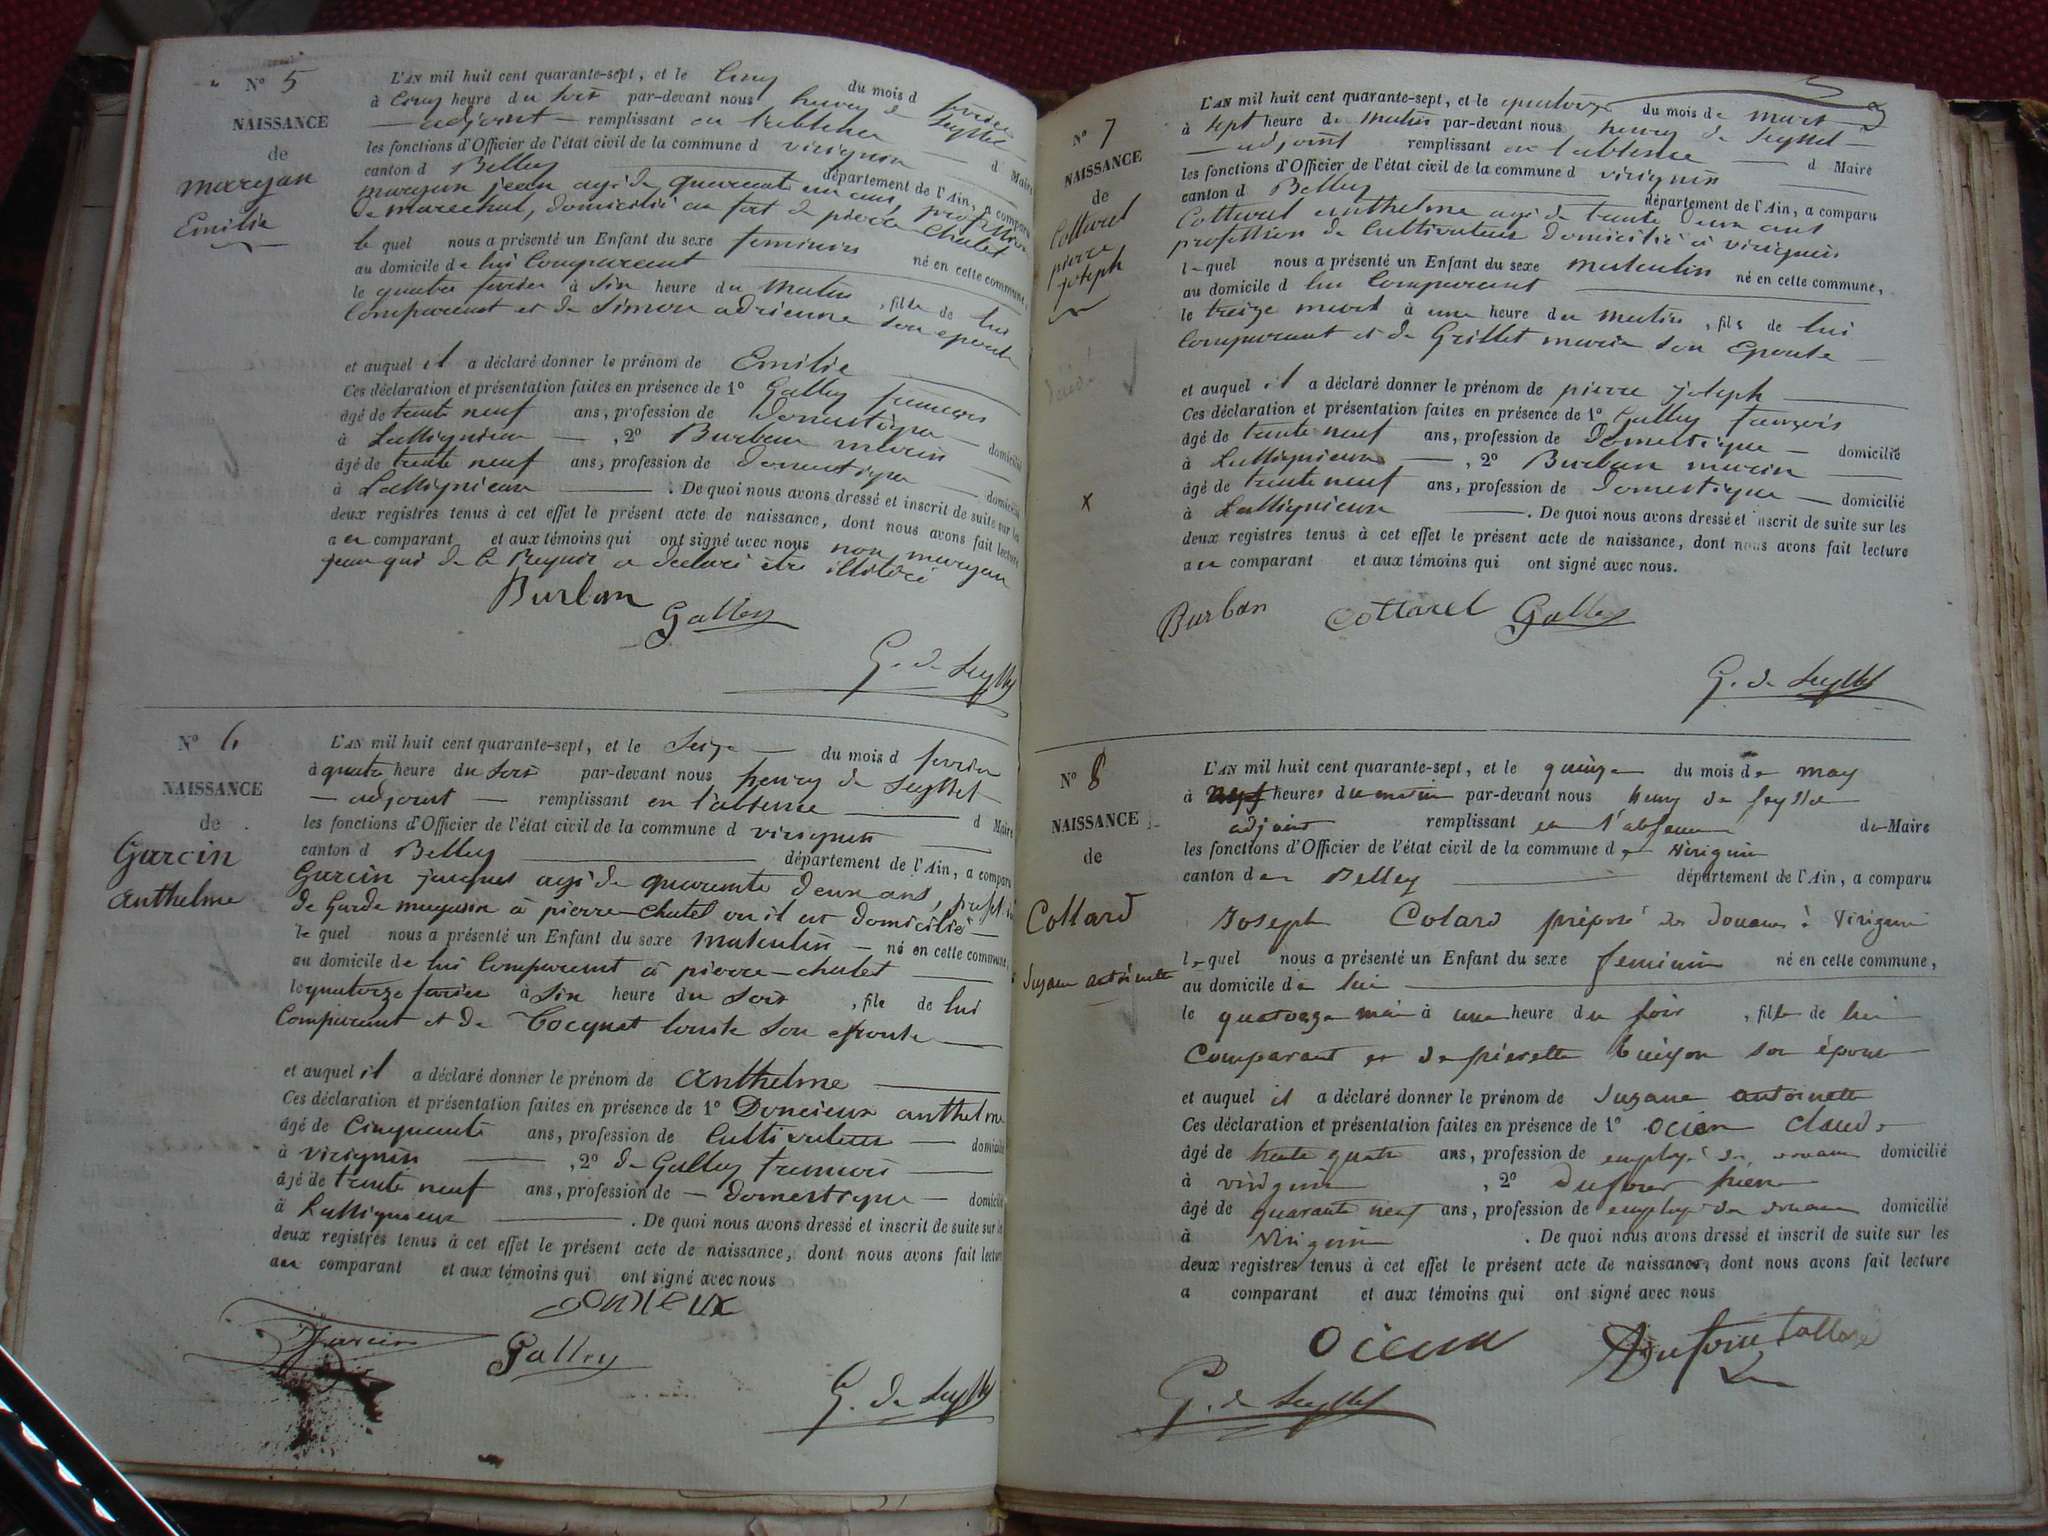 N° 5
NAISSANCE
de
maryan
Emilie
L'AN mil huit cent quarante-sept, et le Cinq du mois d février
à Cinq heure du soir par-devant nous henry de Seyssel
— adjoint — remplissant en l'absence d Maire
les fonctions d'Officier de l'état civil de la commune d virignin
canton d Belley département de l'Ain, a comparu
maryan jean agé de quarante un ans, profession
de marechal, domicilié au fort de pierre Chatel
le quel nous a présenté un Enfant du sexe feminin né en cette commune,
au domicile de lui Comparant
le quatre fevrier à Six heure du matin, fille de lui
Comparant et de Simon adrienne son epouse
et auquel il a déclaré donner le prénom de Emilie
Ces déclaration et présentation faites en présence de 1° Galley francois
âgé de trente neuf ans, profession de Domestique domicilié
à Lassignieux, 2° Burban marin
âgé de trente neuf ans, profession de domestique domicilié
à Lassignieux. De quoi nous avons dressé et inscrit de suite sur les
deux registres tenus à cet effet le présent acte de naissance, dont nous avons fait lecture
a au comparant et aux témoins qui ont signé avec nous non maryan
jean qui de ce Requis a declaré être illitéré
Burban
Galley
G. de Seyssel
N° 6
NAISSANCE
de
Garcin
Anthelme
L'AN mil huit cent quarante-sept, et le Seize du mois d fevrier
à quatre heure du soir par-devant nous henry de Seyssel
— adjoint — remplissant en l'absence d Maire
les fonctions d'Officier de l'état civil de la commune d virignin
canton d Belley département de l'Ain, a comparu
Garcin jacques agé de quarante deux ans,
de Garde magasin à pierre-Chatel ou il est domicilié
le quel nous a présenté un Enfant du sexe masculin né en cette commune,
au domicile de lui Comparant à pierre-chatel
le quatorze fevrier à Six heure du Soir, fils de lui
Comparant et de Cocquet louise son epouse
et auquel il a déclaré donner le prénom de Anthelme
Ces déclaration et présentation faites en présence de 1° Doncieux anthelme
âgé de Cinquante ans, profession de Cultivateur domicilié
à virignin, 2° de Galley francois
âgé de trente neuf ans, profession de — Domestique — domicilié
à Lassignieux. De quoi nous avons dressé et inscrit de suite sur les
deux registres tenus à cet effet le présent acte de naissance, dont nous avons fait lecture
au comparant et aux témoins qui ont signé avec nous
donsieux
Garcin
Galley
G. de Seyssel
N° 7
NAISSANCE
de
Cottarel
pierre
joseph
X
L'AN mil huit cent quarante-sept, et le quatorze du mois de mars
à sept heure du matin par-devant nous henry de Seyssel
— adjoint remplissant en l'absence d Maire
les fonctions d'Officier de l'état civil de la commune d virignin
canton d Belley département de l'Ain, a comparu
Cottarel anthelme agé de trente deux ans
profession de Cultivateur domicilié à virignin
le quel nous a présenté un Enfant du sexe masculin né en cette commune,
au domicile d lui Comparant
le treize mars à une heure du matin, fils de lui
Comparant et de Grillet marie son Epouse
et auquel il a déclaré donner le prénom de pierre joseph
Ces déclaration et présentation faites en présence de 1° Galley françois
âgé de trente neuf ans, profession de Domestique — domicilié
à Lassignieux, 2° Burban marin
âgé de trente neuf ans, profession de Domestique — domicilié
à Lassignieux. De quoi nous avons dressé et inscrit de suite sur les
deux registres tenus à cet effet le présent acte de naissance, dont nous avons fait lecture
a au comparant et aux témoins qui ont signé avec nous.
Burban Cottarel Galley
G. de Seyssel
N° 8
NAISSANCE
de
Collard
Suzane antoinette
L'AN mil huit cent quarante-sept, et le quinze du mois de may
à neuf heures du matin par-devant nous henry de Seyssel
adjoint remplissant en l'absence du Maire
les fonctions d'Officier de l'état civil de la commune de Virignin
canton de Belley département de l'Ain, a comparu
Joseph Colard préposé des douanes à Virignin
le quel nous a présenté un Enfant du sexe feminin né en cette commune,
au domicile de lui
le quatorze mai à une heure du soir, fille de lui
Comparant et de pierrette Guigon son épouse
et auquel il a déclaré donner le prénom de Suzane antoinette
Ces déclaration et présentation faites en présence de 1° Claude
âgé de trente quatre ans, profession de employé des douanes domicilié
à virignin, 2° Dufour pierre
âgé de quarante neuf ans, profession de employé des douanes domicilié
à Virignin. De quoi nous avons dressé et inscrit de suite sur les
deux registres tenus à cet effet le présent acte de naissance, dont nous avons fait lecture
a comparant et aux témoins qui ont signé avec nous
Dufour Collard
G. de Seyssel